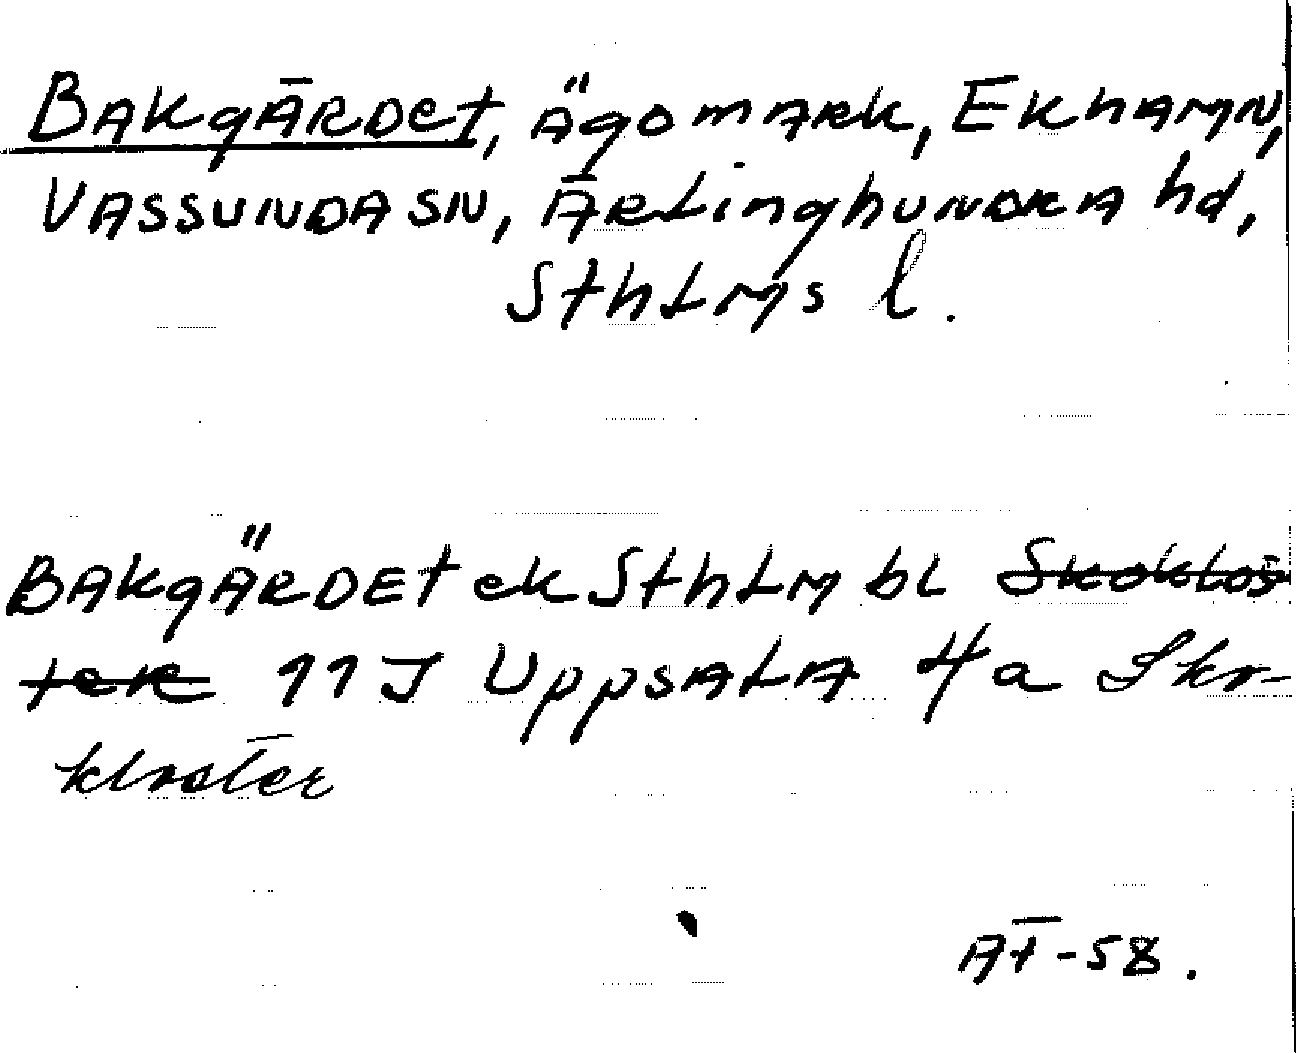 Bakgärdet, Ägomark, Ekhamn,
Vassunda sn, Ärlinghundra hd,
Sthlms l.
Bakgärdet ek Sthlm bl Skoklos
ter 11 J Uppsala 4a Sko-
kloster
AT-58.